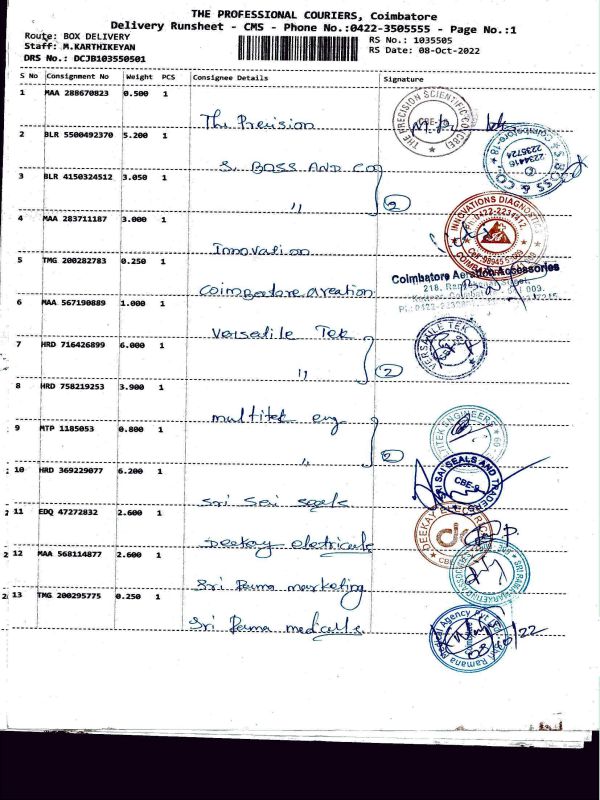 THE PROFESSIONAL COURIERS, Coimbatore
Delivery Runsheet - CMS - Phone No.:0422-3505555 - Page No.:1
Route: BOX DELIVERY
RS No.: 1035505
Staff: M.KARTHIKEYAN
RS Date: 08-Oct-2022
DRS No.: DCJB103550501
S No Consignment No Weight PCS Consignee Details Signature
1 MAA 288670823 0.500 1
The Precision
THE PRECISION SCIENTIFIC CO (CBE)
2 BLR 5500492370 5.200 1
S. BOSS AND CO
S. BOSS & CO. Coimbatore-18
2234416
2235724
3 BLR 4150324512 3.050 1
〃 2
4 MAA 283711187 3.000 1
Innovation
INNOVATIONS DIAGNOSTICS
Ph:0422-2234412
COIMBATORE
5 TMG 200282783 0.250 1
Coimbatore Areation
Coimbatore Aeration Accessories
6 MAA 567190889 1.000 1
Versatile Tek
VERSATILE TEK
7 HRD 716426899 6.000 1
〃 2
8 HRD 758219253 3.900 1
multitek eng
9 MTP 1185053 0.800 1
〃 2
10 HRD 369229077 6.200 1
Sri Sai seals
SRI SAI SEALS AND TRADERS
CBE-9
11 EDQ 47272832 2.600 1
Deekay electricals
DEEKAY
12 MAA 568114877 2.600 1
Sri Rama marketing
13 TMG 200295775 0.250 1
Sri Rama medicals
08/10/22